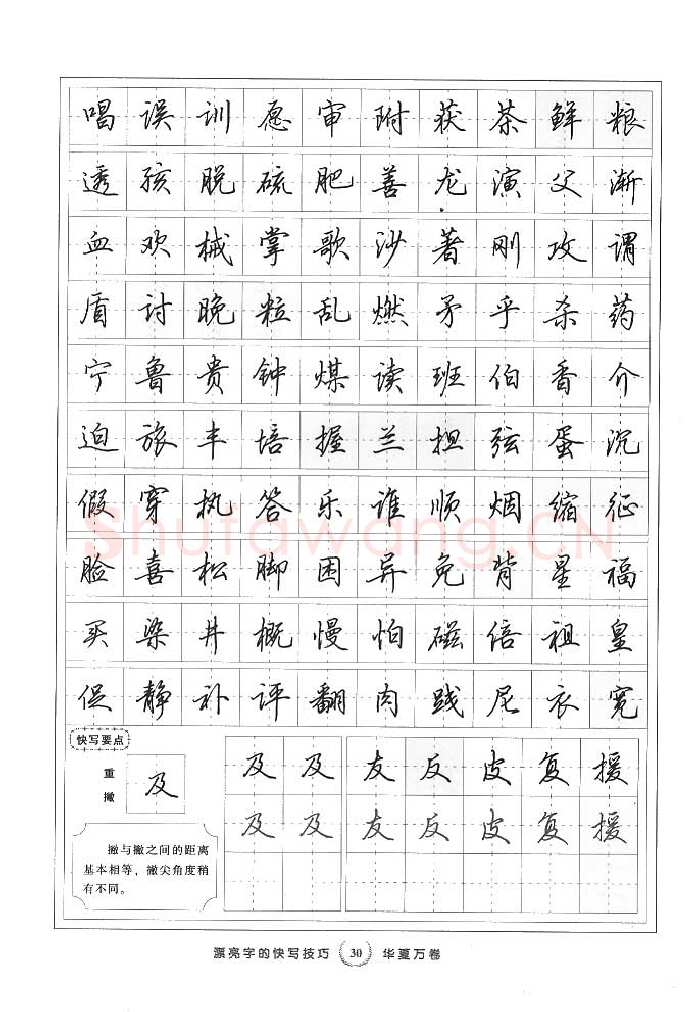 唱误训愿审附获茶鲜粮
透孩脱硫肥善龙演父渐
血欢械掌歌沙著刚攻谓
盾讨晚粒乱燃矛乎杀药
宁鲁贵钟煤读班伯香介
迫旅丰培握兰担弦蛋沉
假穿执答乐谁顺烟缩征
Shufawang.CN
脸喜松脚困异免背星福
买染井概慢怕磁倍祖皇
促静补评翻肉践尼衣宽
快写要点
重撇
及
撇与撇之间的距离
基本相等，撇尖角度稍
有不同。
及及友反皮复援
及及友反皮复援
漂亮字的快写技巧 30 华夏万卷